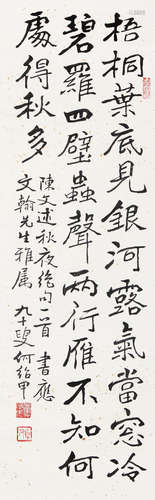 梧桐葉底見銀河露氣當窓冷
碧羅四壁蟲聲两行雁不知何
處得秋多
陳文述秋夜絶句一首 書應
文翰先生雅属 九十叟何紹甲